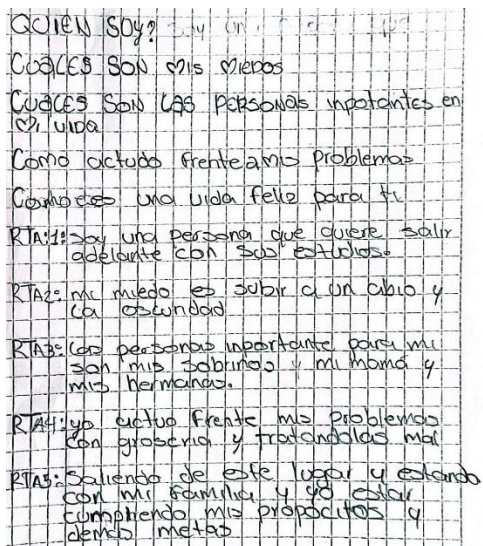 QUIEN SOY?
CUALES SON MIS MIEDOS
CUALES SON LAS PERSONAS INPOTANTES en
Mi VIDA
Como actudo frente a mis problemas
Como es una vida feliz para ti
RTA:1: Soy una persona que quiere salir
adelante con sus estudios.
RTA2: mi miedo es subir a un abio y
la oscuridad
RTA3: las personas inportante para mi
son mis sobrinos y mi mamá y
mis hermanas.
RTA4: yo actuo frente mis problemas
con groseria y tratandolas mal
RTA5: Saliendo de este lugar y estando
con mi familia y yo estar
cumpliendo mis propocitos y
demas metas